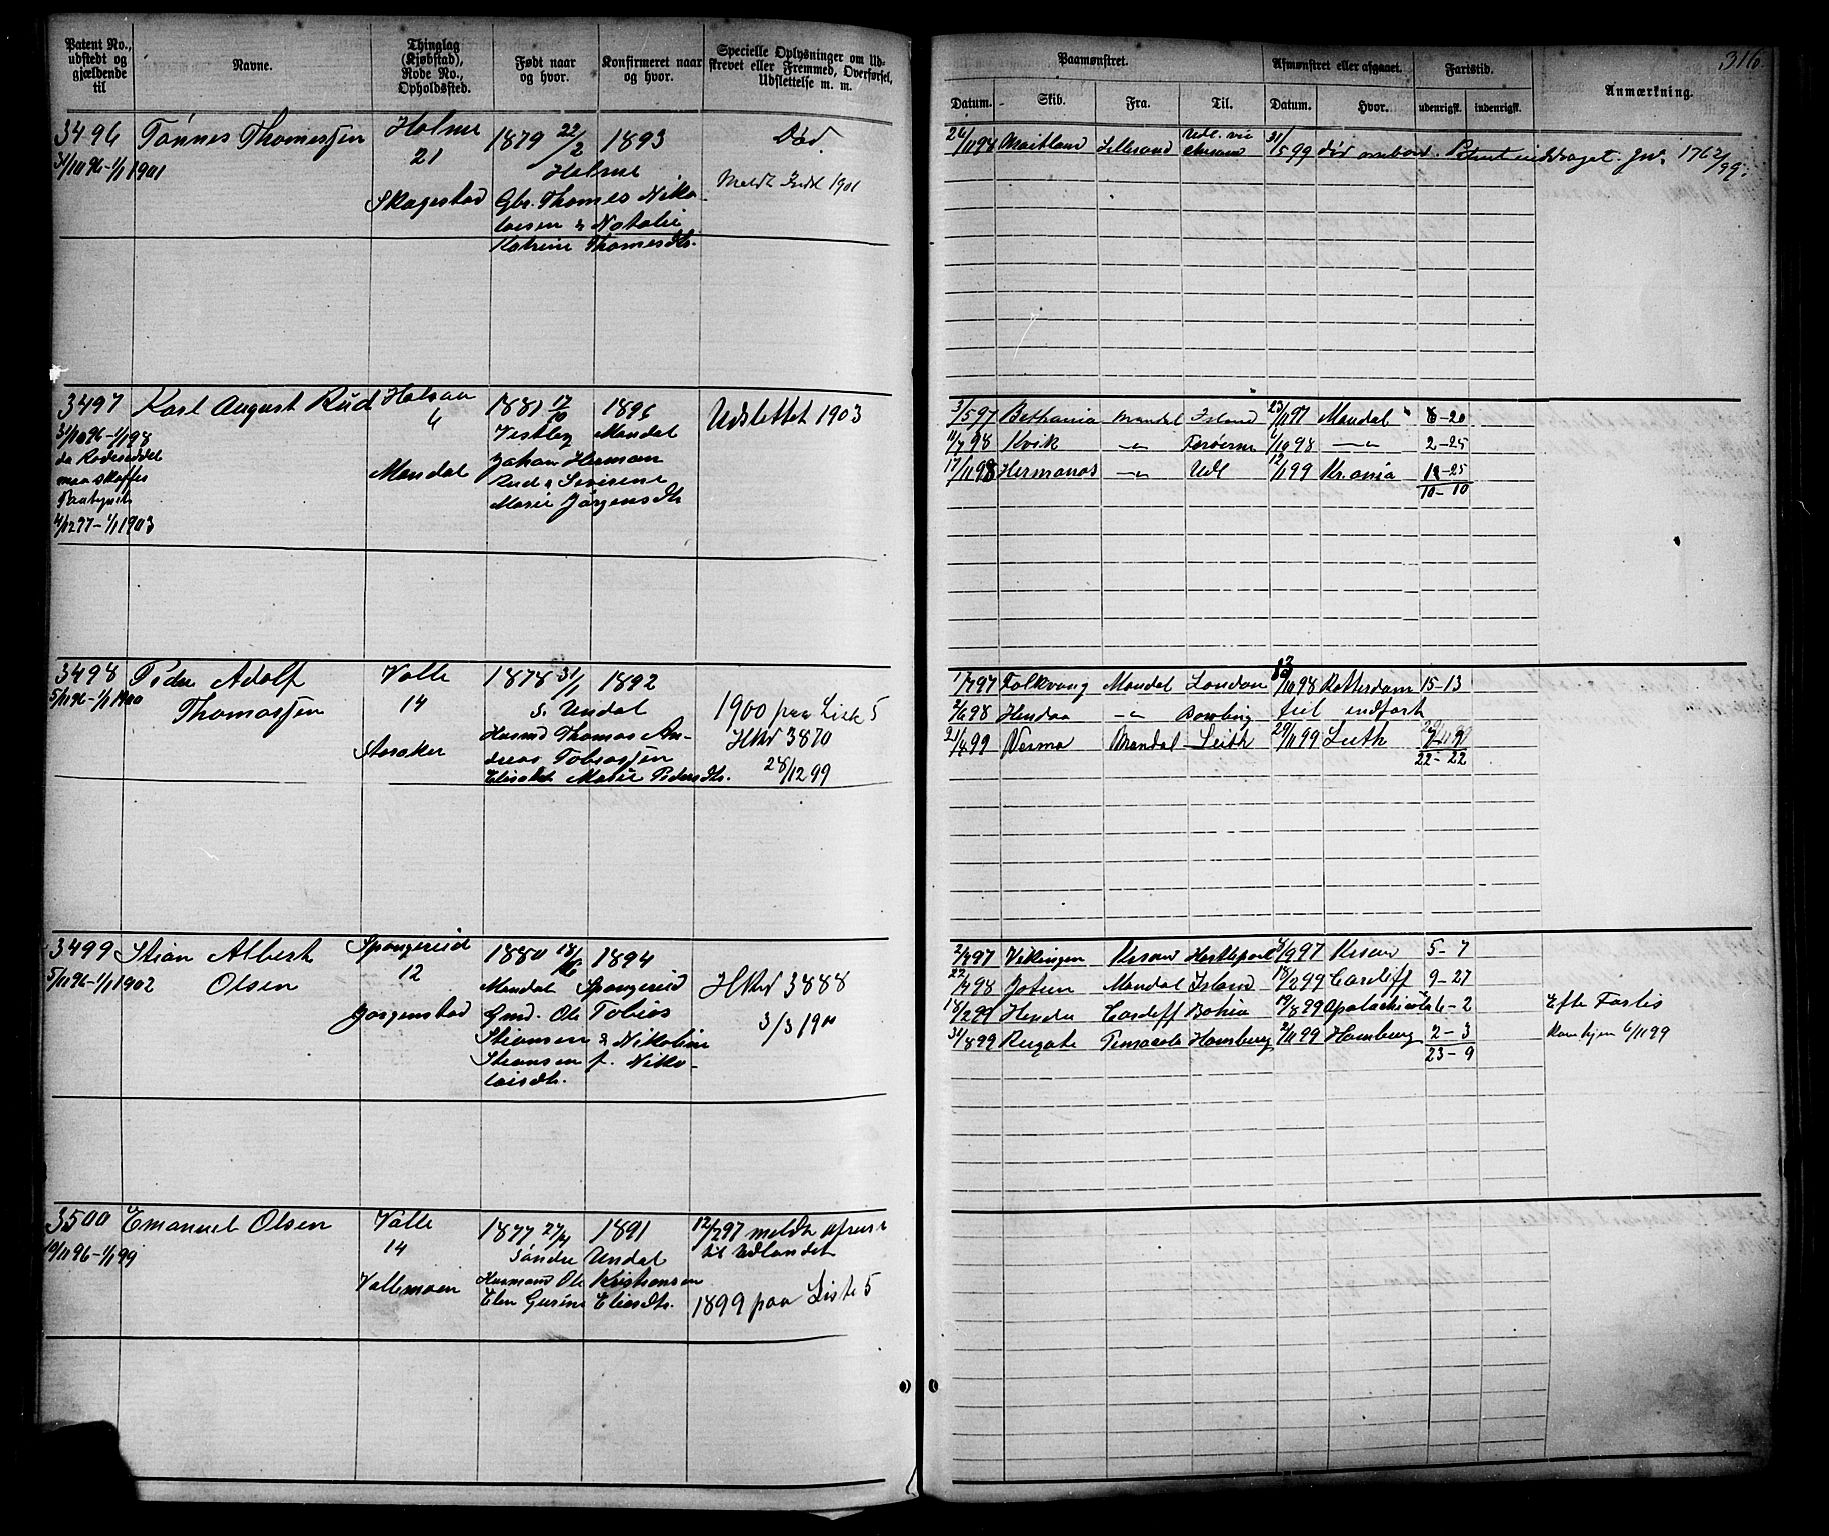 316.
Patent No., udstedt og gjældende til
Navne.
Thinglag (Kjøbstad), Rode No., Opholdssted.
Født naar og hvor.
Konfirmeret naar og hvor.
Specielle Oplysninger om Udskrevet eller Fremmed, Overførsel, Udslettelse m. m.
Paamønstret.
Afmønstret eller afgaaet.
Fartstid.
Anmærkning.
Datum. Skib. Fra. Til. Datum. Hvor. udenrigsk. indenrigsk.
3496 Tønnes Thomassen Holme 1879 22/2 1893 Død.
31/10 96-1/1 1901 21 Holme
Skagestad Gbr. Thomas Niko-
laisen & Natalie
Katrine Thomasdtr.
Meldt Indl 1901
26/11 98 Maitland Lillesand 31/5 99 død ombord. Patent inddraget. Jvr. 1762/99.
3497 Karl August Rud Halsaa 1881 17/10 1896 Udslettet 1903
31/10 96-1/1 98 4 Vestby Mandal
da Rodeseddel
maa skaffes
4/12 97-1/1 1903
Mandal Johan Herman
Rud & Sevirine
Marie Jørgensdtr
3/5 97 Bethania Mandal Island 23/11 97 Mandal 6-20
11/7 98 Kvik -"- Færøerne 1/10 98 -"- 2-25
17/11 98 Hermanos -"- Udl 12/1 99 Kr.ania 1-25
10-10
3498 Peder Adolf Valle 1878 31/1 1892
5/11 96-1/1 1900 Thomassen 14 S. Undal
Aasaker Husmd Thomas An-
dreas Tobiassen
Elisabet Marie Pedersdtr.
1900 paa Liste 5
HKv 3870
28/12 99
1/7 97 Folkvang Mandal London 13/10 98 Rotterdam 15-13
2/6 98 Hendaa -"- Bowling feil indført
21/4 99 Nerma Mandal Leith 29/11 99 Leith
22-22
3499 Stian Albert Spangereid 1880 18/6 1894
5/11 96-1/1 1902 Olsen 12 Mandal Spangereid
Jørgenstad Gmd. Ole Tobias
Stiansen & Nikoline
Stiansen f. Niko-
laisdtr.
HKv 3888
3/3 1900
2/4 97 Vikingen Krsand Hartlepool 8/9 97 Krsand 5-7
22/4 98 Jotun Mandal Island 18/2 99 Cardiff 9-27
18/2 99 Hendra Cardiff Bahia 19/8 99 Apalachicola 6-2 Efter Fartis
31/8 99 Reigate Pensacola Hamburg 2/11 99 Hamburg 2-3 kom hjem 6/11 99
23-9
3500 Emanuel Olsen Valle 1877 27/4 1891 12/2 97 meldt afreist
19/11 96-1/1 99 14 Søndre Undal til Udlandet
Vallemoen Husmand Ole Kristiansen
Elen Gurine Eliasdtr. 1899 paa Liste 5